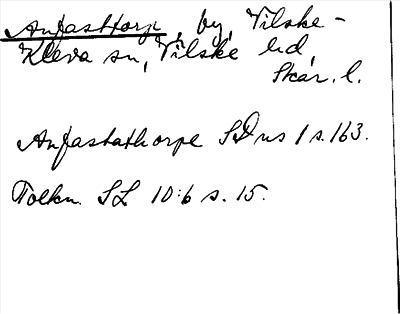 Anfasttorp, by, Vilske-
Kleva sn, Vilske hd,
Skar. l.
Anfastathorpe SD ns 1 s. 163.
Tolkn. SL 10:6 s. 15.